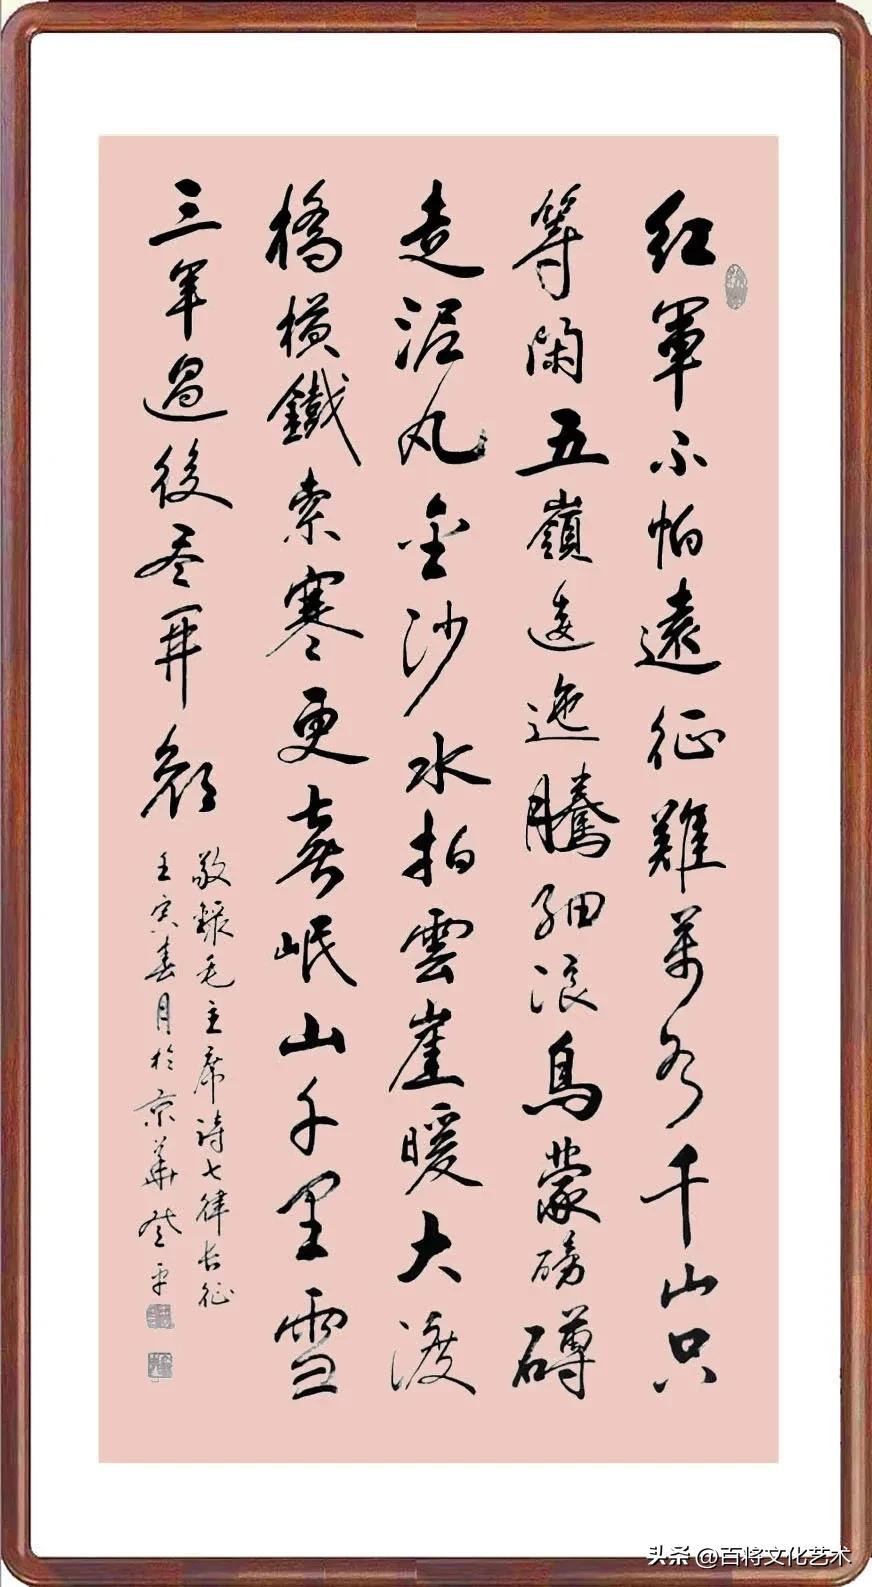 紅軍不怕遠征難萬水千山只
等閑五嶺逶迤騰細浪烏蒙磅礴
走泥丸金沙水拍雲崖暖大渡
橋橫鐵索寒更喜岷山千里雪
三军過後尽开顏
敬錄毛主席诗七律长征
壬寅春月於京華平
头条 @百将文化艺术